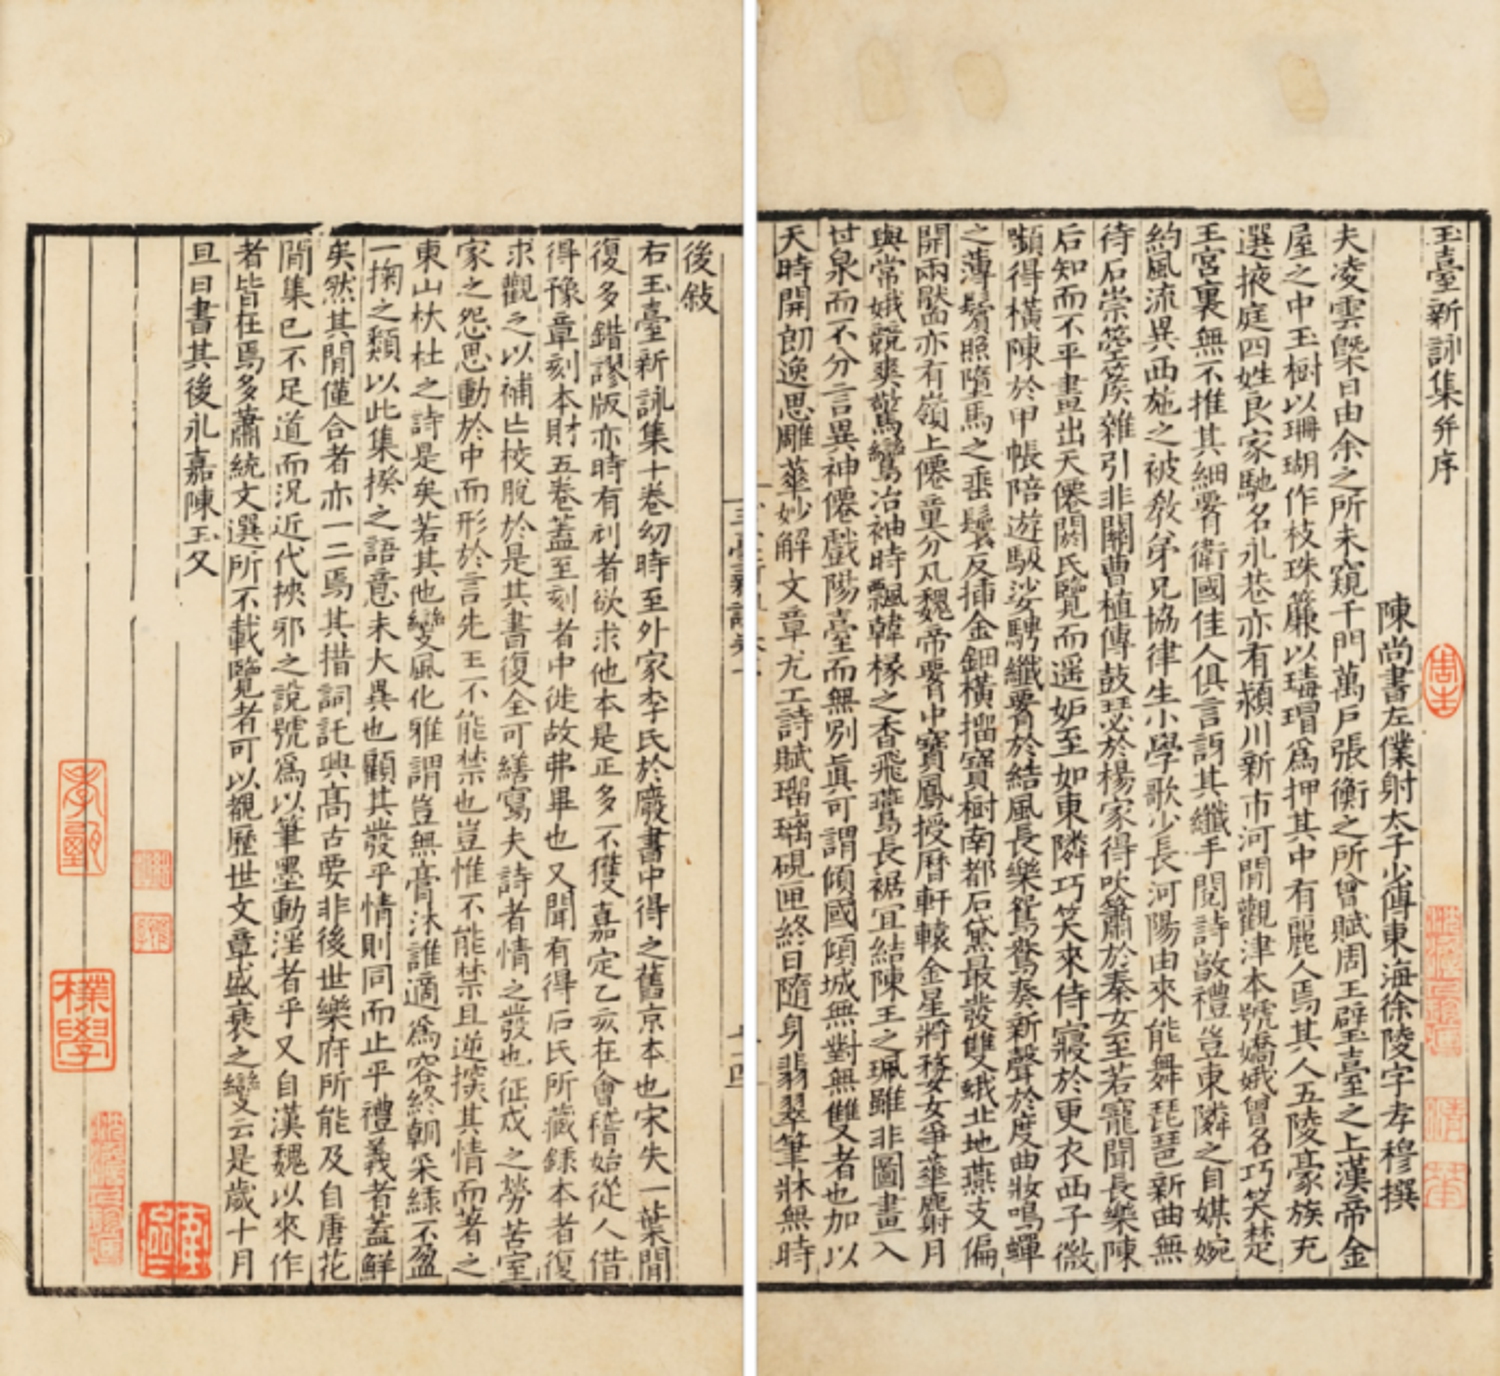 玉臺新詠集并序
陳尚書左僕射太子少傅東海徐陵字孝穆撰
夫凌雲槩日由余之所未窺千門萬戶張衡之所曾賦周王璧臺之上漢帝金
屋之中玉樹以珊瑚作枝珠簾以瑇瑁爲押其中有麗人焉其人五陵豪族充
選掖庭四姓良家馳名永巷亦有潁川新市河間觀津本號嬌娥曾名巧笑楚
王宮裏無不推其細䙅衛國佳人俱言訝其纖手閱詩敦禮豈東隣之自媒婉
約風流異西施之被敎弟兄協律生小學歌少長河陽由來能舞琵琶新曲無
待石崇箜篌雜引非關曹植傳鼓瑟於楊家得吹簫於秦女至若寵聞長樂陳
后知而不平畫出天僊閼氏覽而遥妬至如東隣巧笑來侍寢於更衣西子微
顰得橫陳於甲帳陪遊馺娑騁纖䙅於結風長樂鴛鴦奏新聲於度曲妝鳴蟬
之薄鬢照墮馬之垂鬟反插金鈿橫擂寶樹南都石黛最發雙蛾北地燕支偏
開兩靨亦有嶺上僊童分丸魏帝䙅中寶鳳授曆軒轅金星將婺女爭華麝月
與常娥競爽驚鸞冶袖時飄韓掾之香飛鷰長裾冝結陳王之珮雖非圖畫入
甘泉而不分言異神僊戲陽臺而無別眞可謂傾國傾城無對無雙者也加以
天時開朗逸思雕華妙解文章尤工詩賦瑠璃硯匣終日隨身翡翠筆牀無時
後敍
右玉臺新詠集十卷幼時至外家李氏於廢書中得之舊京本也宋失一葉間
復多錯謬版亦時有刓者欲求他本是正多不獲嘉定乙亥在會稽始從人借
得豫章刻本財五卷蓋至刻者中徙故弗畢也又聞有得石氏所藏錄本者復
求觀之以補亡校脫於是其書復全可繕寫夫詩者情之發也征戍之勞苦室
家之怨思動於中而形於言先王不能禁也豈惟不能禁且逆探其情而著之
東山杕杜之詩是矣若其他變風化雅謂豈無膏沐誰適爲容終朝采綠不盈
一掬之類以此集揆之語意未大異也顧其發乎情則同而止乎禮義者蓋鮮
矣然其間僅合者亦一二焉其措詞託興高古要非後世樂府所能及自唐花
間集已不足道而況近代挾邪之說號爲以筆墨動淫者乎又自漢魏以來作
者皆在焉多蕭統文選所不載覽者可以覩歷世文章盛衰之變云是歲十月
旦日書其後永嘉陳玉父
樸學